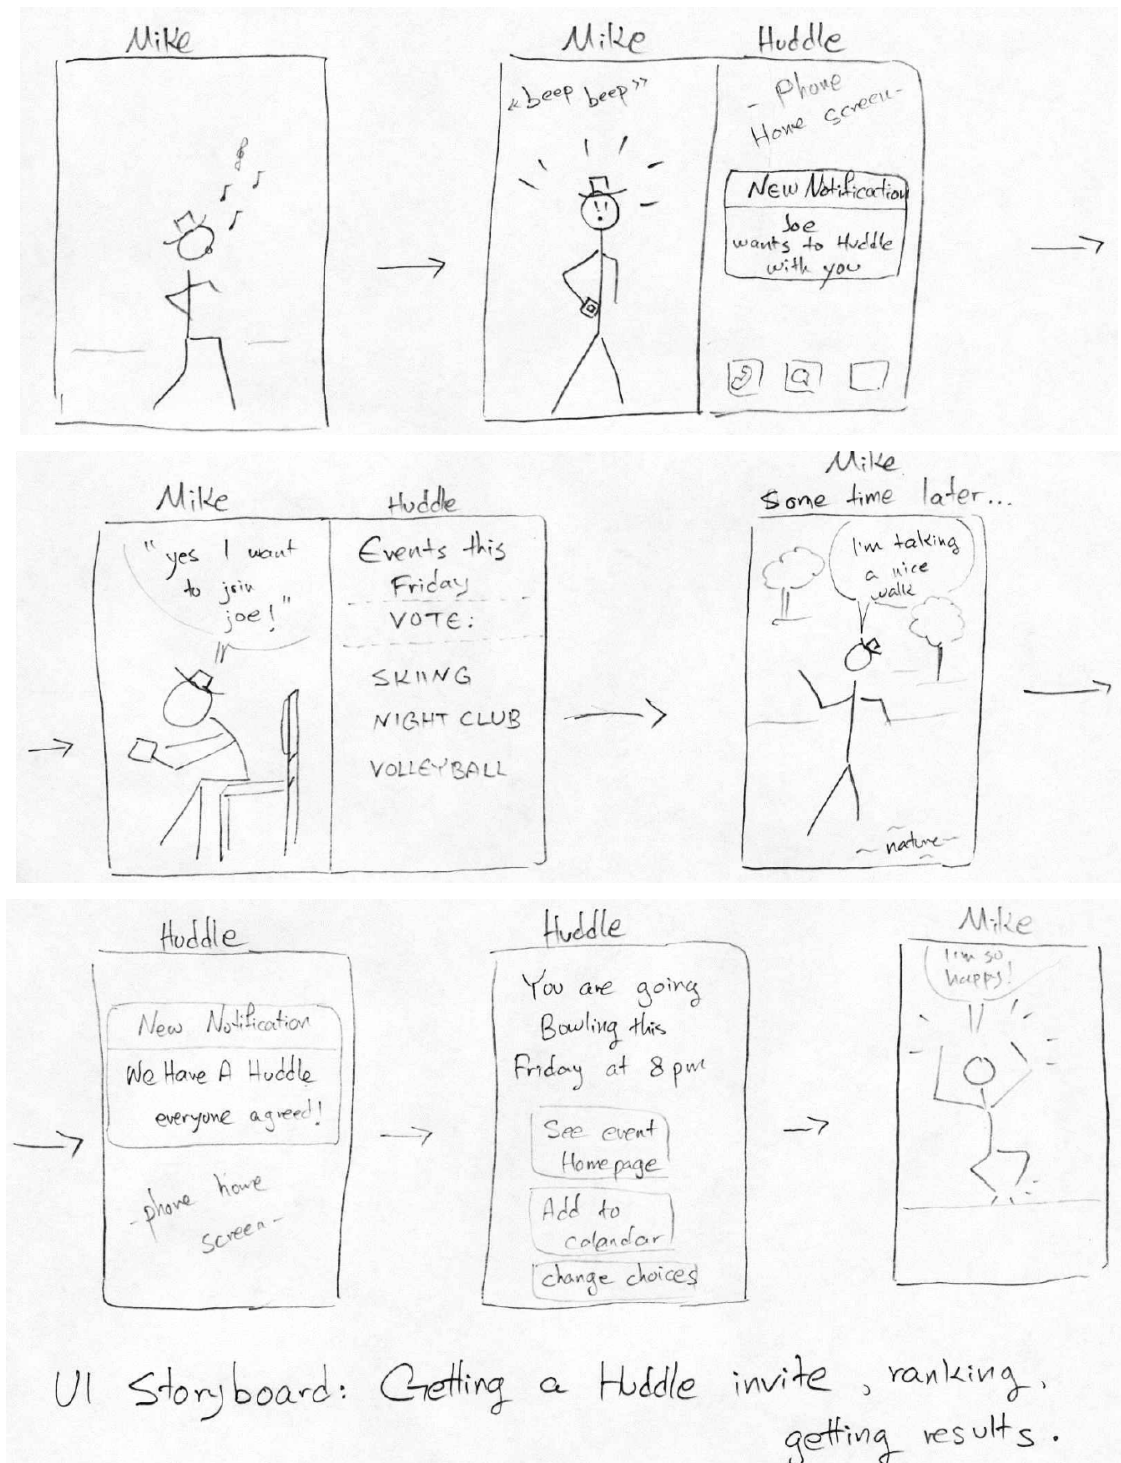 Mike
Mike
Huddle
«beep beep»
- Phone
Home screen-
New Notification
Joe
wants to Huddle
with you
Mike
Huddle
"yes I want
to join
joe!"
Events this
Friday
VOTE:
SKIING
NIGHT CLUB
VOLLEYBALL
Mike
Some time later...
I'm taking
a nice
walk
~ nature ~
Huddle
New Notification
We Have A Huddle
everyone agreed!
-phone home
screen-
Huddle
You are going
Bowling this
Friday at 8 pm
See event
Homepage
Add to
calandar
change choices
Mike
I'm so
happy!
UI Storyboard: Getting a Huddle invite, ranking,
getting results.